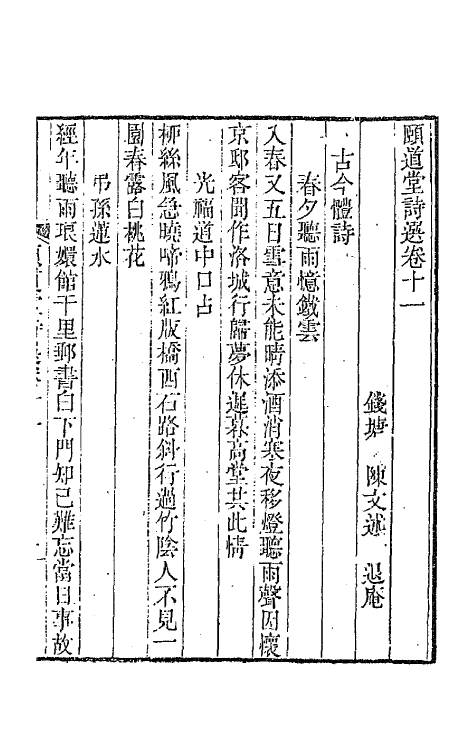 頤道堂詩選卷十一
錢塘　陳文述　退庵
古今體詩
春夕聽雨憶鐵雲
入春又五日雪意未能晴添酒消寒夜移燈聽雨聲因懷
京邸客閒作洛城行歸夢休遲暮高堂共此情
光福道中口占
柳絲風急曉啼鴉紅版橋西石路斜行過竹陰人不見一
園春露白桃花
弔孫蓮水
經年聽雨琅嬛館千里郵書白下門知己難忘當日事故